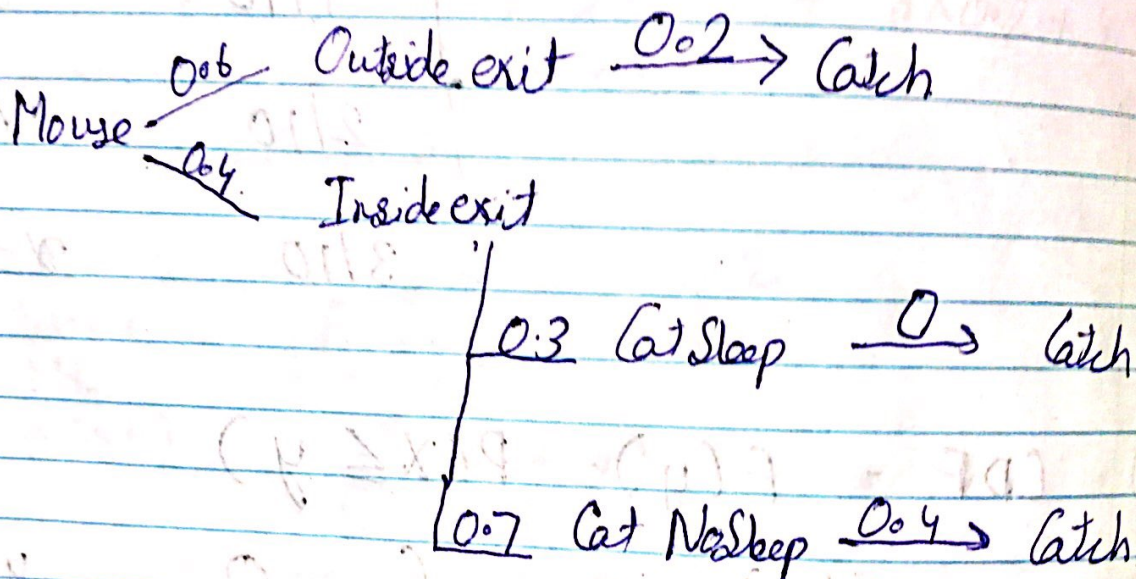 0.6 Outside exit 0.2 → Catch
Mouse
0.4
Inside exit
0.3 Cat Sleep 0 → Catch
0.7 Cat NoSleep 0.4 → Catch